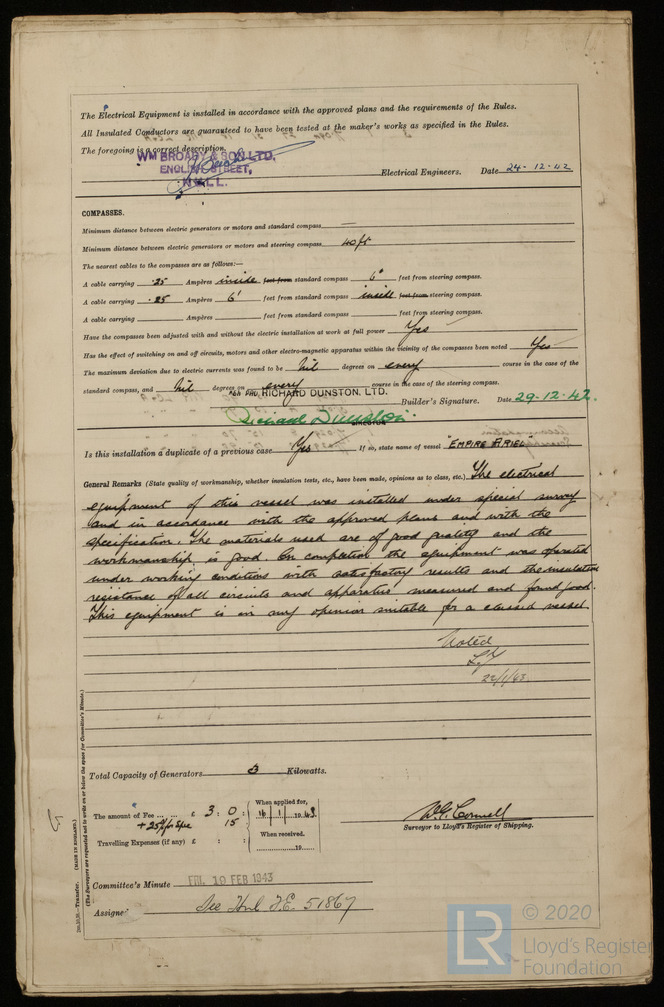 The Electrical Equipment is installed in accordance with the approved plans and the requirements of the Rules.
All Insulated Conductors are guaranteed to have been tested at the maker's works as specified in the Rules.
The foregoing is a correct description.
WM BROADY & SON LTD.
ENGLISH STREET,
HULL.
Electrical Engineers. Date 24-12-42
COMPASSES.
Minimum distance between electric generators or motors and standard compass —
Minimum distance between electric generators or motors and steering compass 40ft
The nearest cables to the compasses are as follows:—
A cable carrying .25 Ampères inside feet from standard compass 6' feet from steering compass.
A cable carrying .25 Ampères 6' feet from standard compass inside feet from steering compass.
A cable carrying Ampères feet from standard compass feet from steering compass.
Have the compasses been adjusted with and without the electric installation at work at full power Yes
Has the effect of switching on and off circuits, motors and other electro-magnetic apparatus within the vicinity of the compasses been noted Yes
The maximum deviation due to electric currents was found to be Nil degrees on every course in the case of the
standard compass, and Nil degrees on every course in the case of the steering compass.
RICHARD DUNSTON, LTD.
Richard Dunston Builder's Signature. Date 29-12-42.
DIRECTOR
Is this installation a duplicate of a previous case Yes If so, state name of vessel "EMPIRE ARIEL"
General Remarks (State quality of workmanship, whether insulation tests, etc., have been made, opinions as to class, etc.) The electrical
equipment of this vessel was installed under special survey
and in accordance with the approved plans and with the
specification. The materials used are of good quality and the
workmanship is good. On completion the equipment was operated
under working conditions with satisfactory results and the insulation
resistance of all circuits and apparatus measured and found good.
This equipment is in my opinion suitable for a classed vessel.
Noted
22/1/43
Total Capacity of Generators 3 Kilowatts.
The amount of Fee ... ... £ 3 : 0 : When applied for, 16 1 1943
+ 25% for 15
Travelling Expenses (if any) £ : : When received, 19
Surveyor to Lloyd's Register of Shipping.
Committee's Minute FRI. 19 FEB 1943
Assigned See Hul F.E. 51867
Transfer. (MADE IN ENGLAND.)
(The Surveyors are requested not to write on or below the space for Committee's Minute.)
LR
© 2020
Lloyd's Register
Foundation